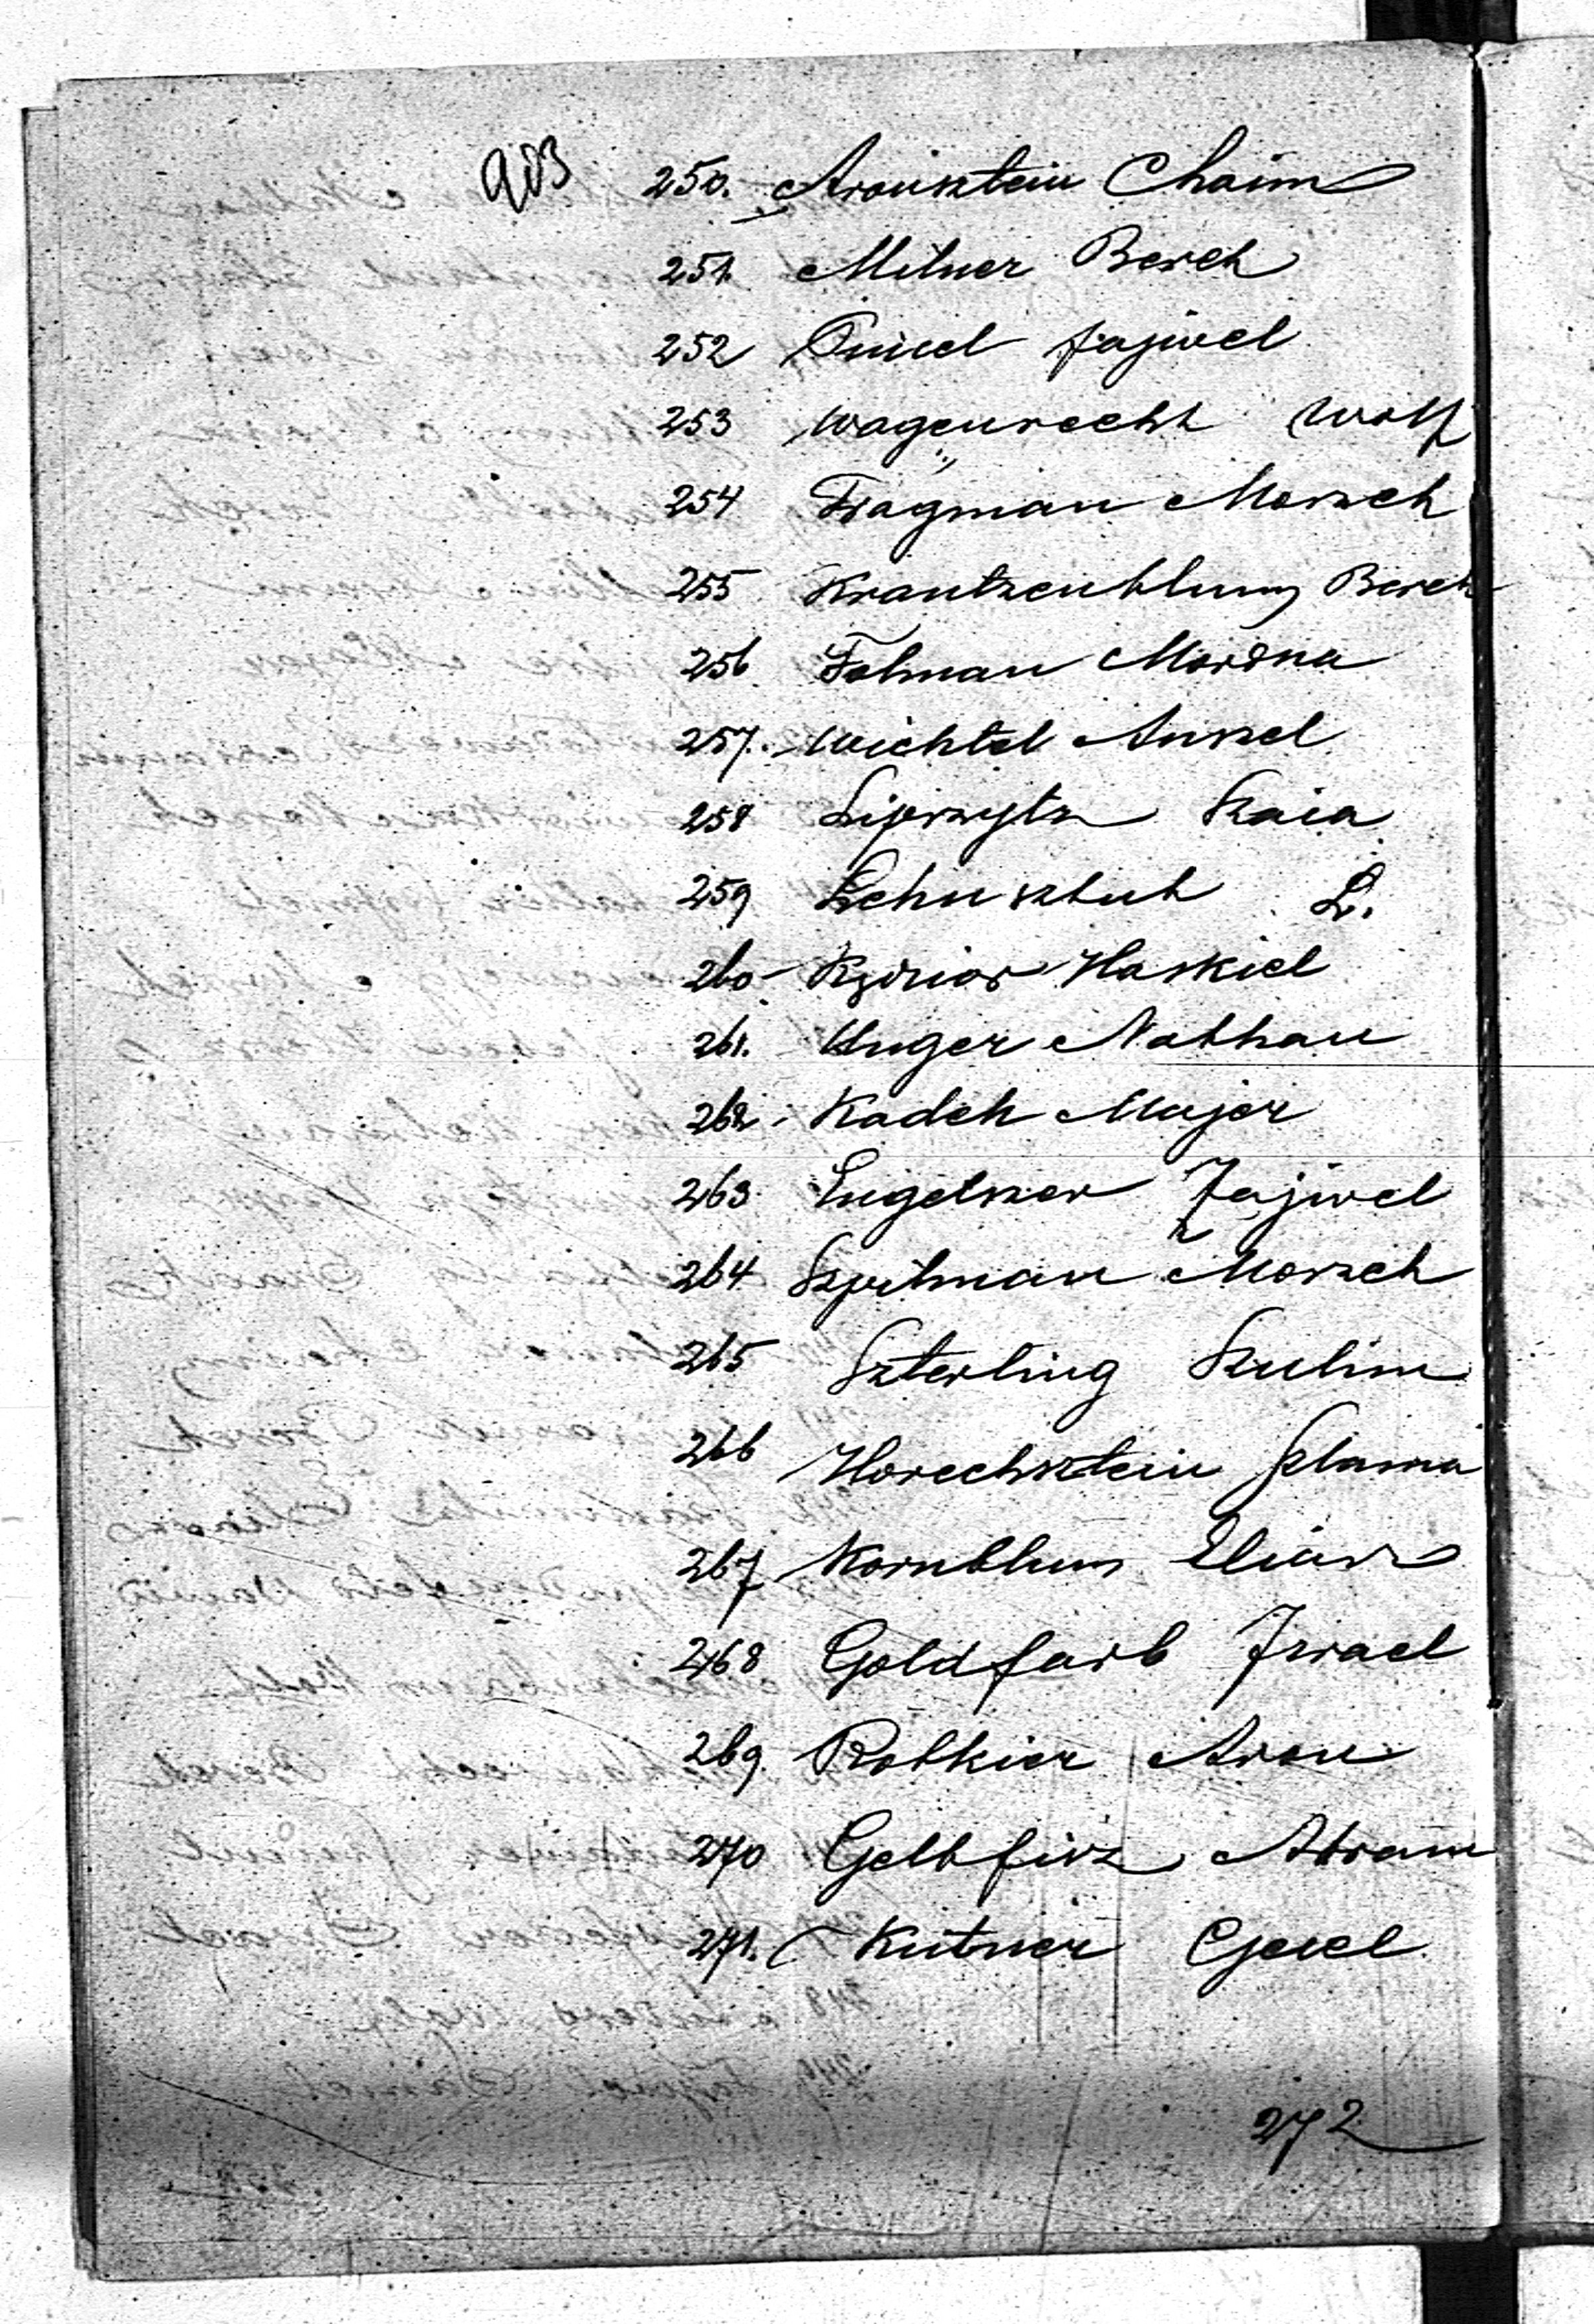 903
250. Aronsztein Chaim
251. Milner Berek
252 Fajwel
253 Wagenrecht Wolf
254 Fragman Moszek
255 Krantzenblum Berek
256 Folman Mordka
257. Wichtel Anszel
258 Lipszytz Szaia
259 L.
260 Haskiel
261. Unger Nathan
262. Kadeh Majer
263 Engelszer Fajwel
264 Szpilman Moszek
265 Szterling Szulim
266 Horechsztein Szlama
267 Kornblum Eliasz
268 Goldfarb Israel
269. Rotkier Aron
270 Gelbfisz Abram
271. Kutner Gesel
272